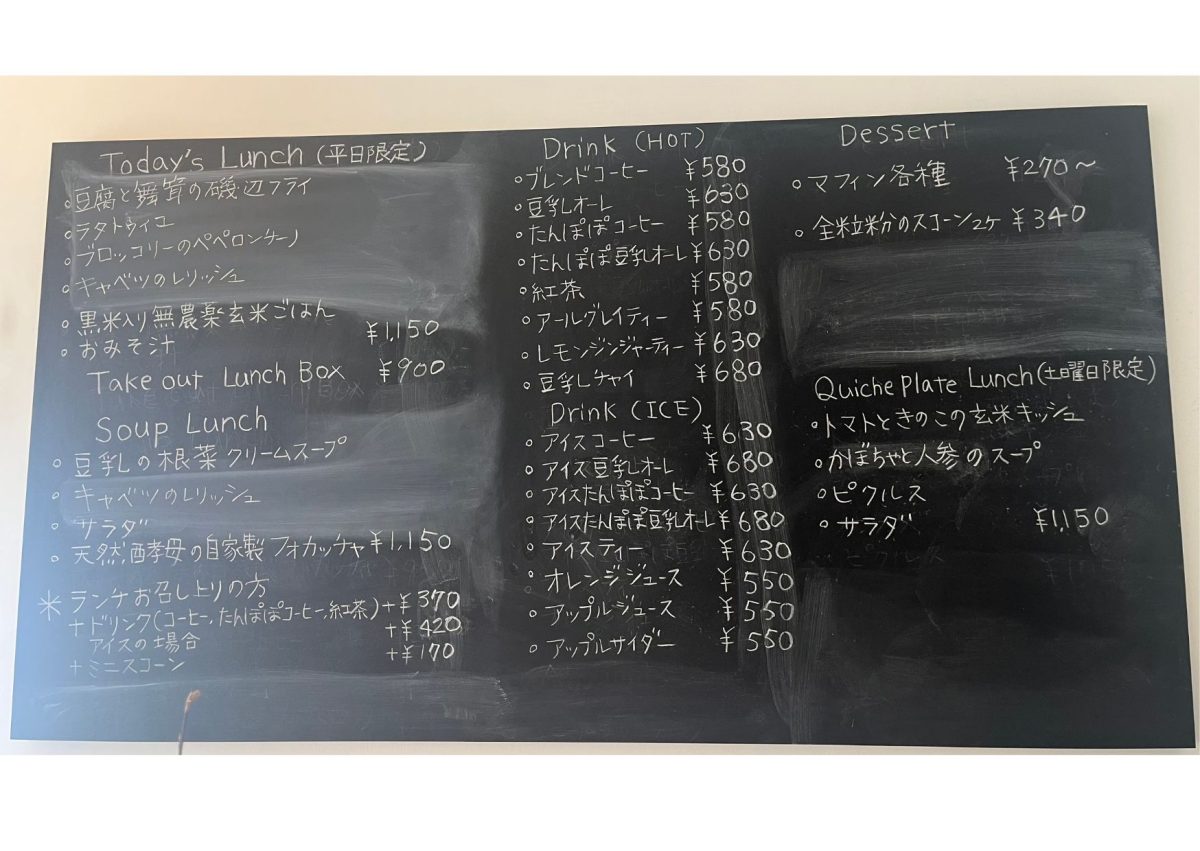 Today's Lunch (平日限定)
○豆腐と舞茸の磯辺フライ
○ラタトゥイユ
○ブロッコリーのペペロンチーノ
○キャベツのレリッシュ
○黒米入り無農薬玄米ごはん
○おみそ汁 ¥1,150
Take out Lunch Box ¥900
Soup Lunch
○豆乳の根菜クリームスープ
○キャベツのレリッシュ
○サラダ
○天然酵母の自家製フォカッチャ ¥1,150
＊ランチお召し上りの方
+ドリンク(コーヒー,たんぽぽコーヒー,紅茶) +¥370
アイスの場合 +¥420
+ミニスコーン +¥170
Drink (HOT)
○ブレンドコーヒー ¥580
○豆乳オーレ ¥630
○たんぽぽコーヒー ¥580
○たんぽぽ豆乳オーレ ¥630
○紅茶 ¥580
○アールグレイティー ¥580
○レモンジンジャーティー ¥630
○豆乳チャイ ¥680
Drink (ICE)
○アイスコーヒー ¥630
○アイス豆乳オーレ ¥680
○アイスたんぽぽコーヒー ¥630
○アイスたんぽぽ豆乳オーレ ¥680
○アイスティー ¥630
○オレンジジュース ¥550
○アップルジュース ¥550
○アップルサイダー ¥550
Dessert
○マフィン各種 ¥270〜
○全粒粉のスコーン2ケ ¥340
Quiche Plate Lunch (土曜日限定)
○トマトときのこの玄米キッシュ
○かぼちゃと人参のスープ
○ピクルス
○サラダ ¥1,150